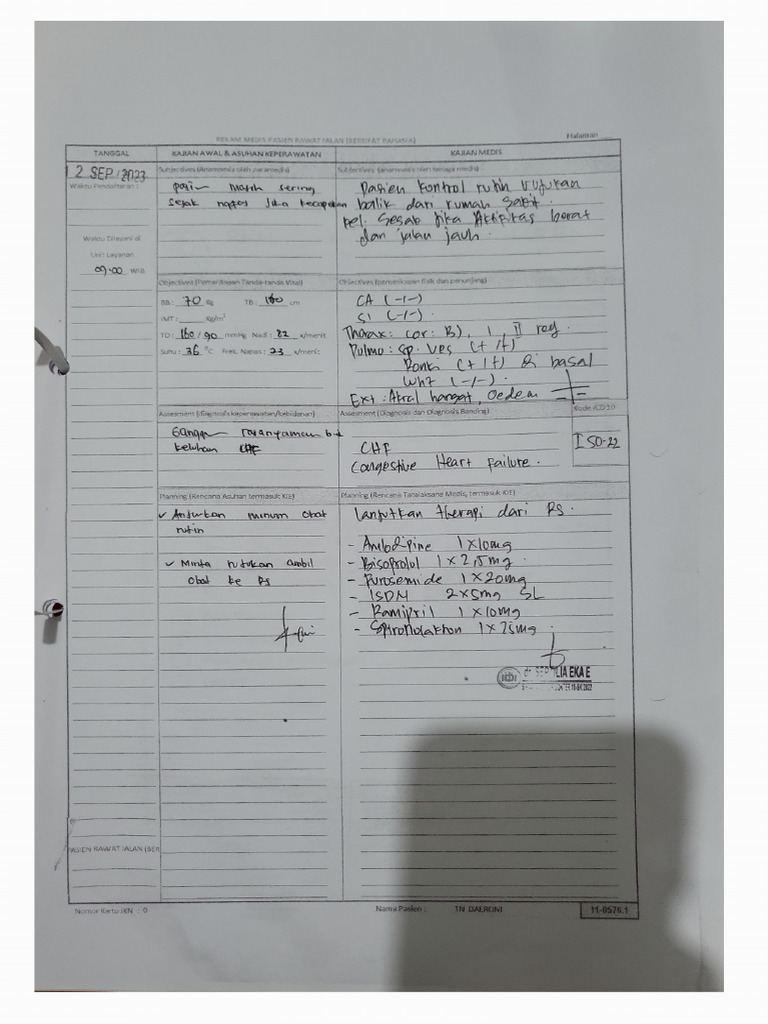 REKAM MEDIS PASIEN RAWAT JALAN (BERSIFAT RAHASIA)
Halaman
TANGGAL
KAJIAN AWAL & ASUHAN KEPERAWATAN
KAJIAN MEDIS
2 SEP 2023
Waktu Pendaftaran :
Waktu Dilayani di
Unit Layanan
09.00 WIB
Subjectives (Anamnesis oleh paramedis)
masih sering
sesak nafas jika kecapekan
Subjectives (anamnesis oleh tenaga medis)
Pasien kontrol rutin rujukan
balik dari rumah sakit.
kel. Sesak jika Aktifitas berat
dan jalan jauh.
Objectives (Pemeriksaan Tanda-tanda Vital)
BB : 70 Kg TB : 160 cm
IMT : Kg/m²
TD : 160 / 90 mmHg Nadi : 82 x/menit
Suhu : 36 °C Frek. Napas : 23 x/menit
Objectives (pemeriksaan fisik dan penunjang)
CA (-/-)
SI (-/-)
Thorax : cor : BJ, I, II reg.
Pulmo : Sp. Ves (+/+)
Ronki (+/+) di basal
Whz (-/-).
Ext : Akral hangat, Oedem
Assesment (diagnosis keperawatan/kebidanan)
keluhan CHF
Assesment (Diagnosis dan Diagnosis Banding)
CHF
Congestive Heart Failure.
Kode ICD 10
I 50-22
Planning (Rencana Asuhan termasuk KIE)
✓ Anjurkan minum obat
rutin
✓ Minta rujukan ambil
obat ke RS
Planning (Rencana Tatalaksana Medis, termasuk KIE)
Lanjutkan therapi dari RS.
- Amlodipine 1x10mg
- Bisoprolol 1x2,5mg
- Furosemide 1x20mg
- ISDN 2x5mg SL
- Ramipril 1x10mg
- Spironolakton 1x25mg
EKA E
PASIEN RAWAT JALAN (BER
Nomor Kartu JKN : 0
Nama Pasien : TN DAERONI
11-0576.1